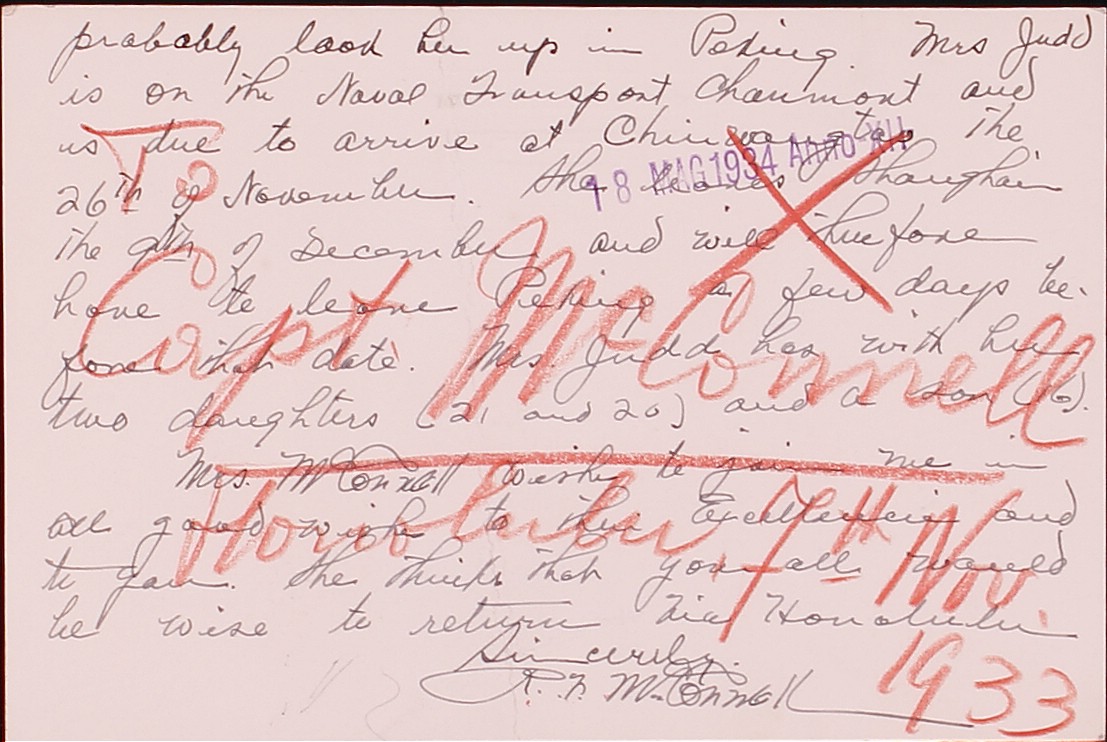 probably look her up in Peking. Mrs Judd
is on the Naval Transport Chaumont and
is due to arrive at Chinwangtao the
26th of November. She leaves Shanghai
18 MAG 1934 Anno XII
the 9th of December and will therefore
have to leave Peking a few days be-
fore that date. Mrs. Judd has with her
two daughters (21 and 20) and a son (16).
Mrs. McConnell wishes to join me in
all good wishes to their Excellencies and
to you. She thinks that you all would
be wise to return via Honolulu
Sincerely.
R. F. McConnell
To
Capt McConnell
Honolulu 7th Nov.
1933